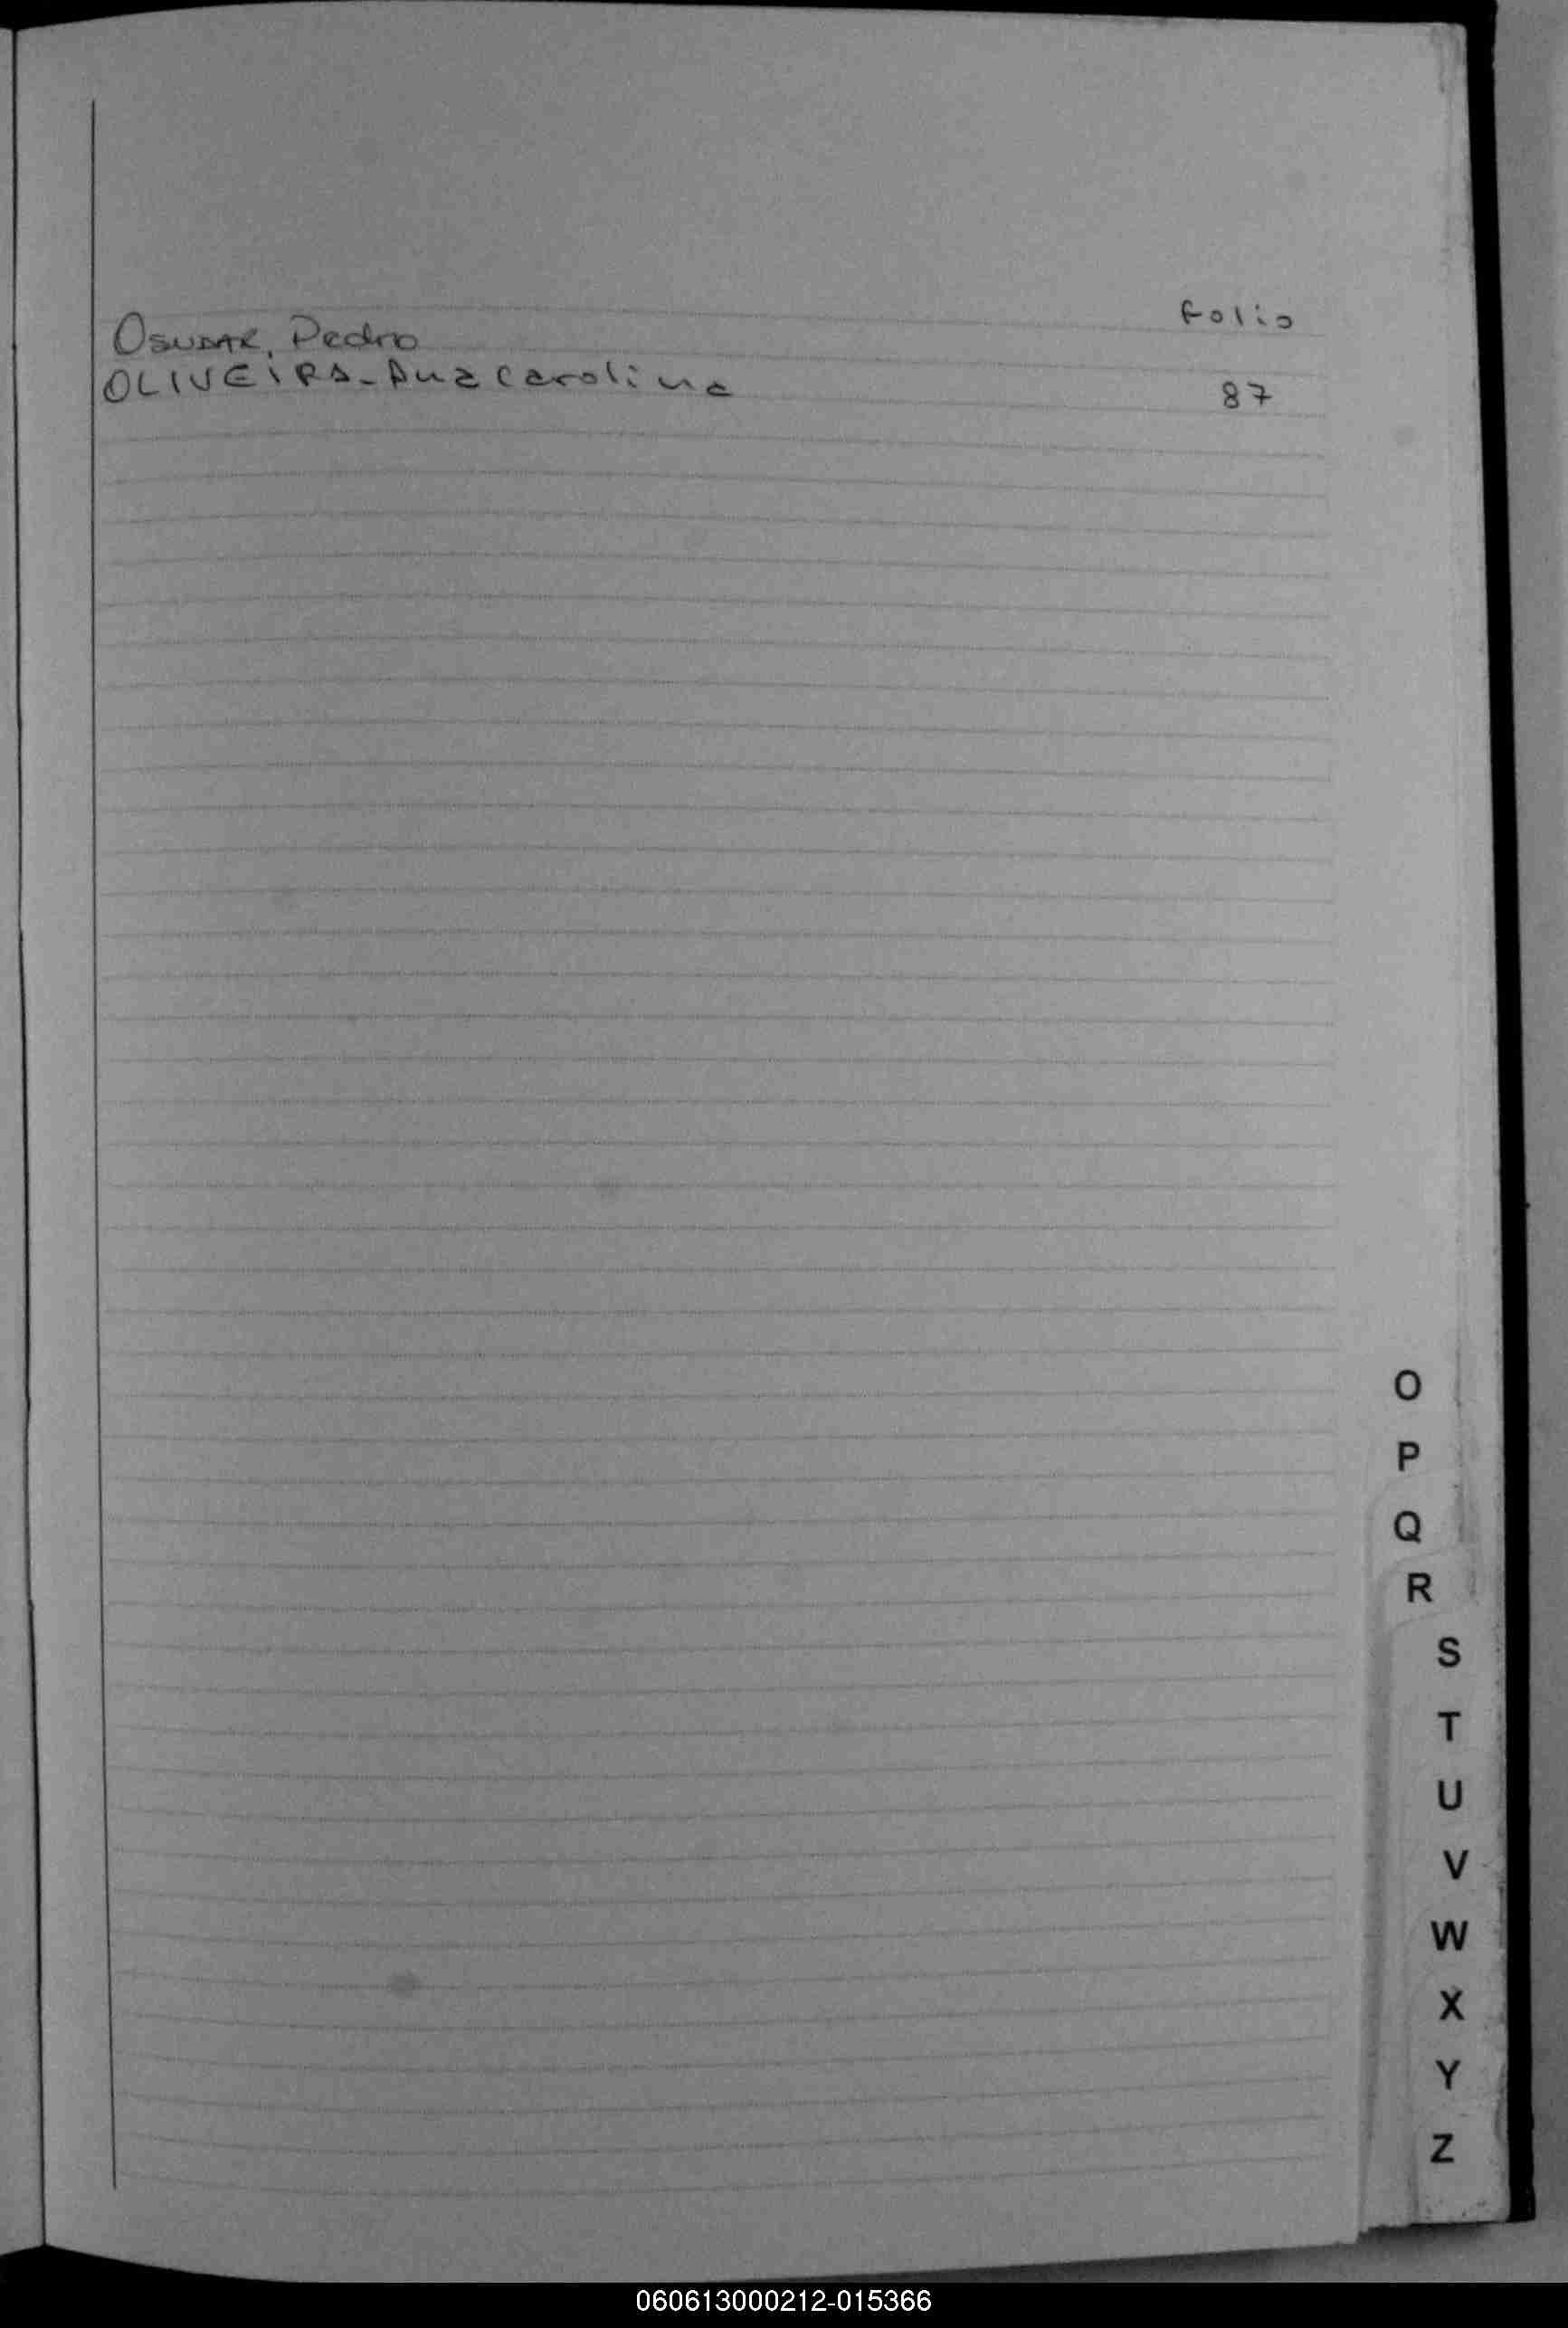 Folio
Osunar, Pedro
OLIVEIRA - Ana Carolina 87
O
P
Q
R
S
T
U
V
W
X
Y
Z
060613000212-015366